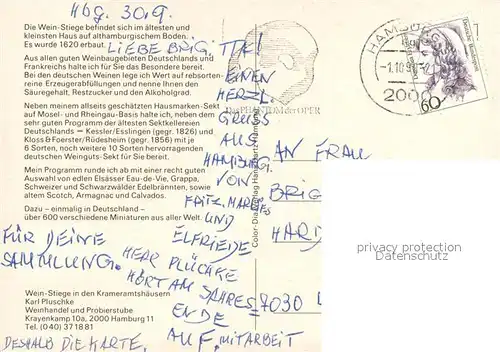 Hbg. 30.9.
LIEBE BRIGITTA!
EINEN
HERZL.
GRUSS
AUS
HAMBURG
VON
FRITZ,
UND
ELFRIEDE
FÜR DEINE
SAMMLUNG.
HERR PLÜCKE
HÖRT AM JAHRES=
ENDE
AUF, MITARBEIT
DESHALB DIE KARTE.
Die Wein-Stiege befindet sich im ältesten und
kleinsten Haus auf althamburgischem Boden.
Es wurde 1620 erbaut.
Aus allen guten Weinbaugebieten Deutschlands und
Frankreichs halte ich für Sie das Besondere bereit.
Bei den deutschen Weinen lege ich Wert auf rebsorten-
reine Erzeugerabfüllungen und nenne Ihnen den
Säuregehalt, Restzucker und den Alkoholgrad.
Neben meinem allseits geschätzten Hausmarken-Sekt
auf Mosel- und Rheingau-Basis halte ich, neben dem
sehr guten Programm der ältesten Sektkellereien
Deutschlands — Kessler/Esslingen (gegr. 1826) und
Kloss&Foerster/Rüdesheim (gegr. 1856) mit je
6 Sorten, noch weitere 10 Sorten hervorragenden
deutschen Weinguts-Sekt für Sie bereit.
Mein Programm runde ich ab mit einer recht guten
Auswahl von edlen Elsässer Eau-de-Vie, Grappa,
Schweizer und Schwarzwälder Edelbränden, sowie
altem Scotch, Armagnac und Calvados.
Dazu – einmalig in Deutschland –
über 600 verschiedene Miniaturen aus aller Welt.
Wein-Stiege in den Krameramtshäusern
Karl Pluschke
Weinhandel und Probierstube
Krayenkamp 10a, 2000 Hamburg 11
Tel. (040) 371881
Das PHANTOM der OPER
HAMBURG
2000
60
AN FRAU
BRIG
HARD
7030
privacy protection
Datenschutz